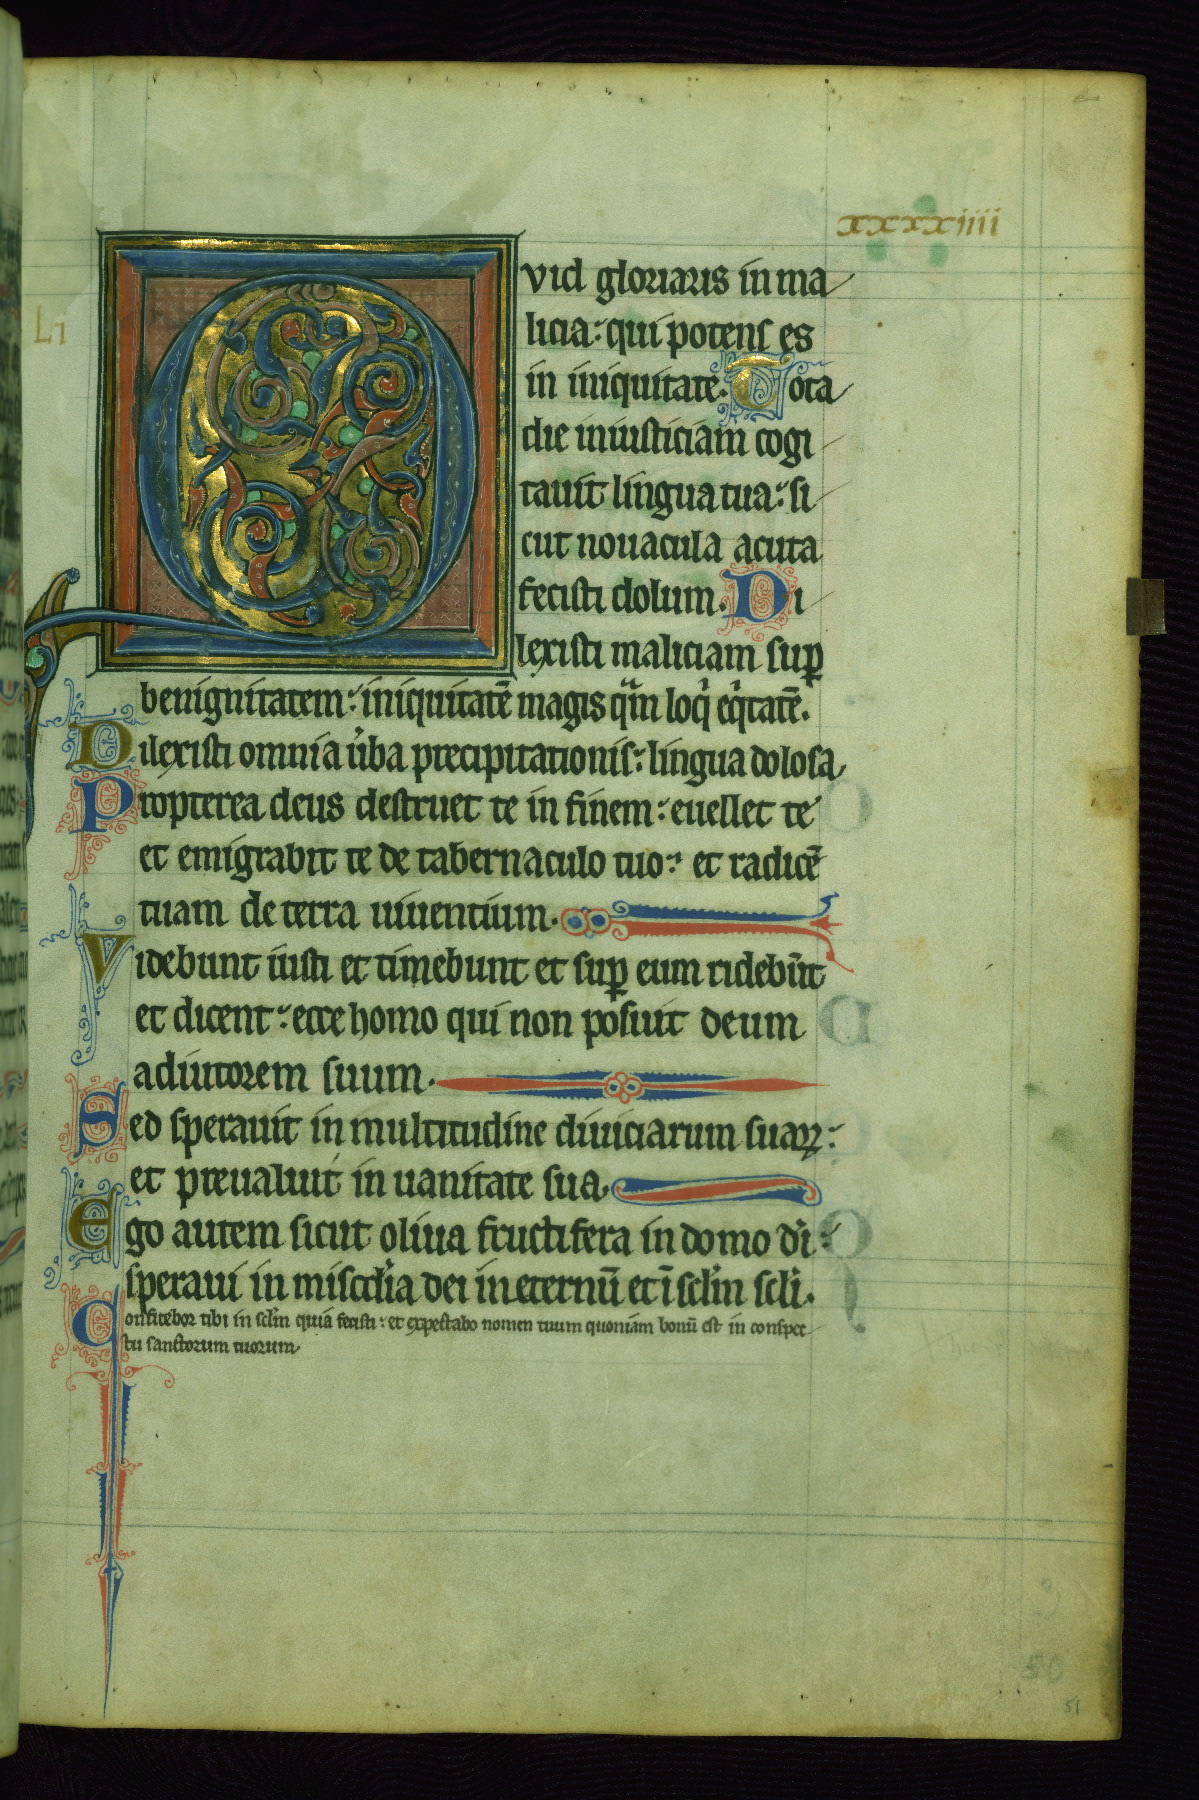 xxxxiiii
LI
Quid gloriaris in ma
licia: qui potens es
in iniquitate. Tota
die iniusticiam cogi
tauit lingua tua: si
cut nouacula acuta
fecisti dolum. Di
lexisti maliciam sup
benignitatem: iniquitatē magis qm̄ loqi eqitatē.
Dilexisti omnia uba precipitationis: lingua dolosa
Propterea deus destruet te in finem: euellet te
et emigrabit te de tabernaculo tuo: et radicē
tuam de terra uiuentium.
Videbunt iusti et timebunt et sup eum ridebūt
et dicent: ecce homo qui non posuit deum
adiutorem suum.
Sed sperauit in multitudine diuiciarum suaꝝ:
et preualuit in uanitate sua.
Ego autem sicut oliua fructifera in domo di:
speraui in miscdia dei in eternū et ī sclm scli.
Confitebor tibi in sclm quia fecisti: et expectabo nomen tuum quoniam bonū est in conspec
tu sanctorum tuorum
50
51